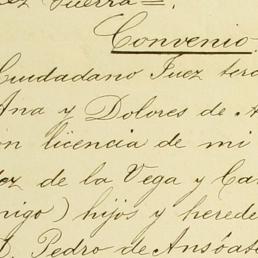 ez Guerra=.
Convenio.
Ciudadano Juez terc
Ana y Dolores de A
on licencia de mi
dez de la Vega y Ca
nigo) hijos y herede
D. Pedro de Ansóate